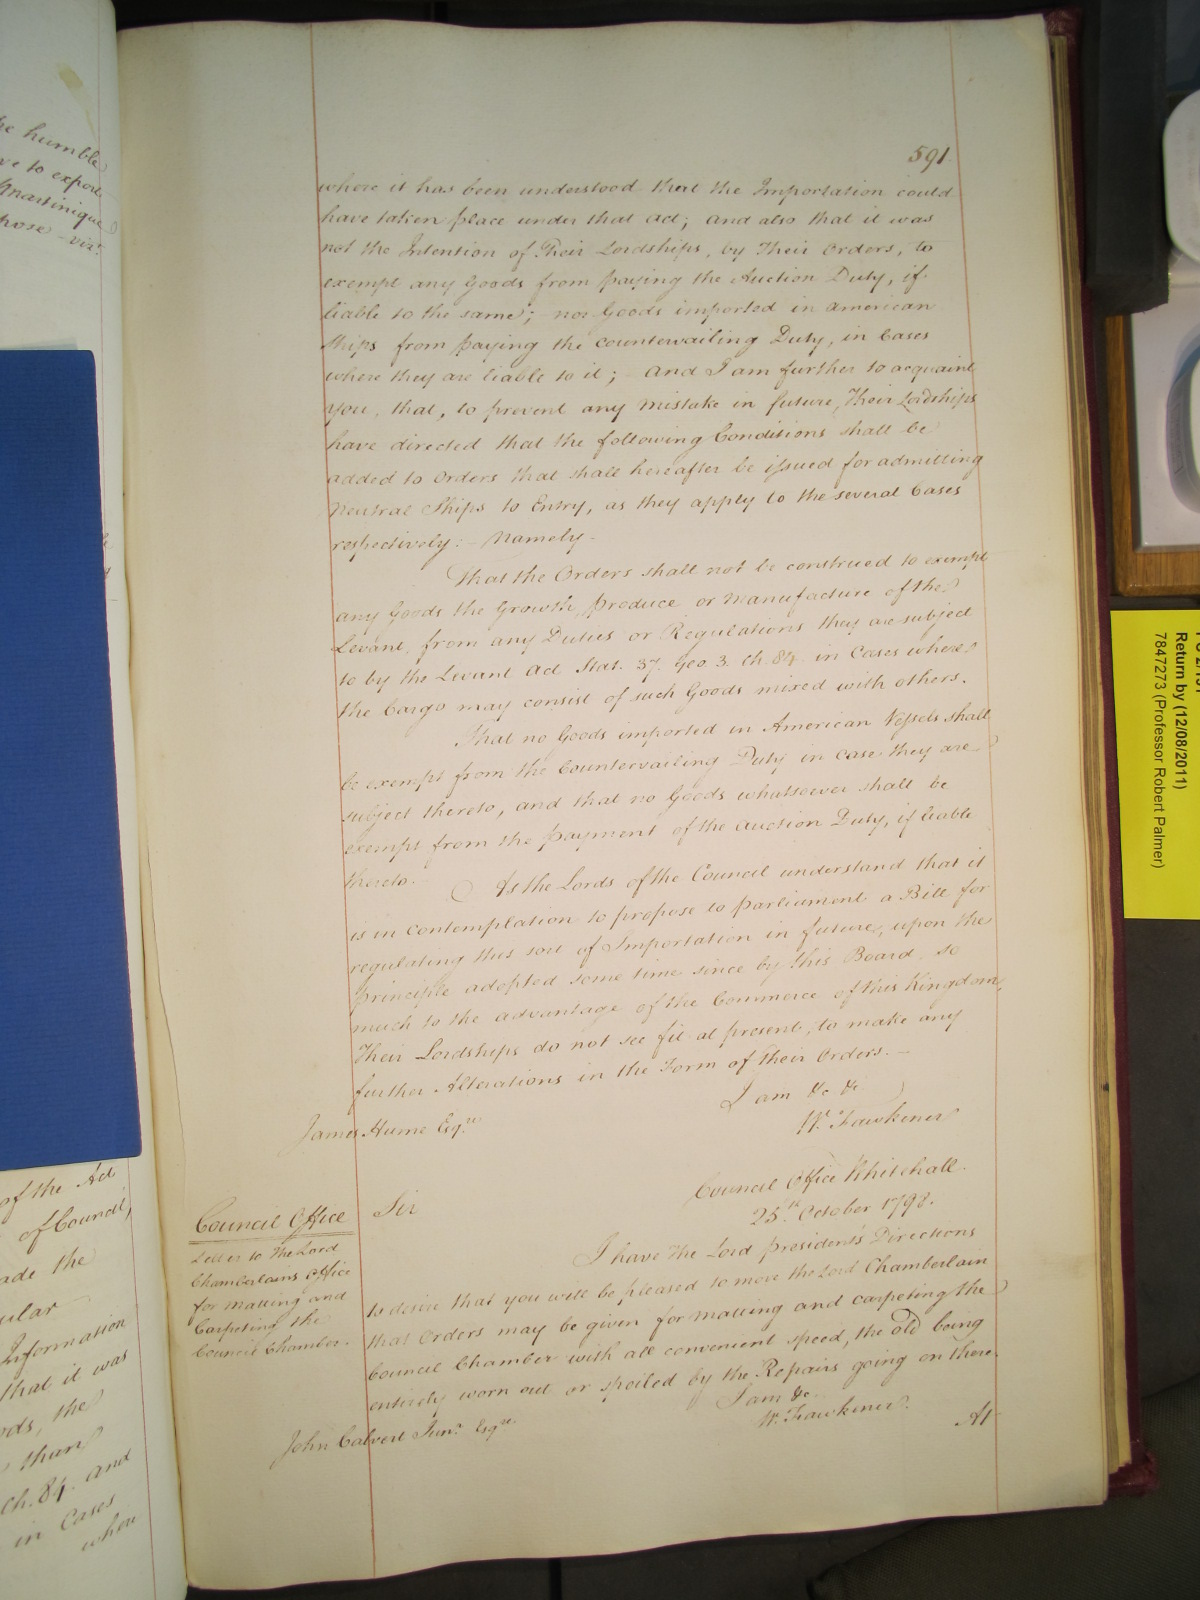 he humble
ve to export
Martinique
pose viz.
591.
where it has been understood that the Importation could
have taken place under that Act; and also that it was
not the Intention of Their Lordships, by Their Orders, to
exempt any Goods from paying the Auction Duty, if
liable to the same; nor Goods imported in American
Ships from paying the Countervailing Duty, in Cases
where they are liable to it; And I am further to acquaint
you, that, to prevent any Mistake in future, Their Lordships
have directed that the following Conditions shall be
added to Orders that shall hereafter be issued for admitting
Neutral Ships to Entry, as they apply to the several Cases
respectively: Namely
That the Orders shall not be construed to exempt
any Goods the Growth, Produce or Manufacture of the
Levant, from any Duties or Regulations they are subject
to by the Levant Act Stat. 37. Geo 3. Ch. 84. in Cases where
the Cargo may consist of such Goods mixed with others.
That no Goods imported in American Vessels shall
be exempt from the Countervailing Duty in case they are
subject thereto, and that no Goods whatsoever shall be
exempt from the payment of the Auction Duty, if liable
thereto.
As the Lords of the Council understand that it
is in contemplation to propose to Parliament a Bill for
regulating this sort of Importation in future, upon the
principle adopted some time since by this Board so
much to the advantage of the Commerce of this Kingdom,
Their Lordships do not see fit at present, to make any
further Alterations in the Form of Their Orders.
I am &c &c
W. Fawkener
James Hume Esqre
Council Office Whitehall.
25th October 1798.
Council Office
Letter to the Lord
Chamberlains Office
for matting and
Carpeting the
Council Chamber.
Sir
I have the Lord president's Directions
to desire that you will be pleased to move the Lord Chamberlain
that Orders may be given for matting and carpeting the
Council Chamber with all convenient speed, the old being
entirely worn out or spoiled by the Repairs going on there.
I am &c.
W. Fawkener.
John Calvert Junr. Esqre
At
of the Act
of Council,
ade the
ular
Information
that it was
ods, the
than
Ch. 84. and
in Cases
where
Return by (12/08/2011)
7847273 (Professor Robert Palmer)